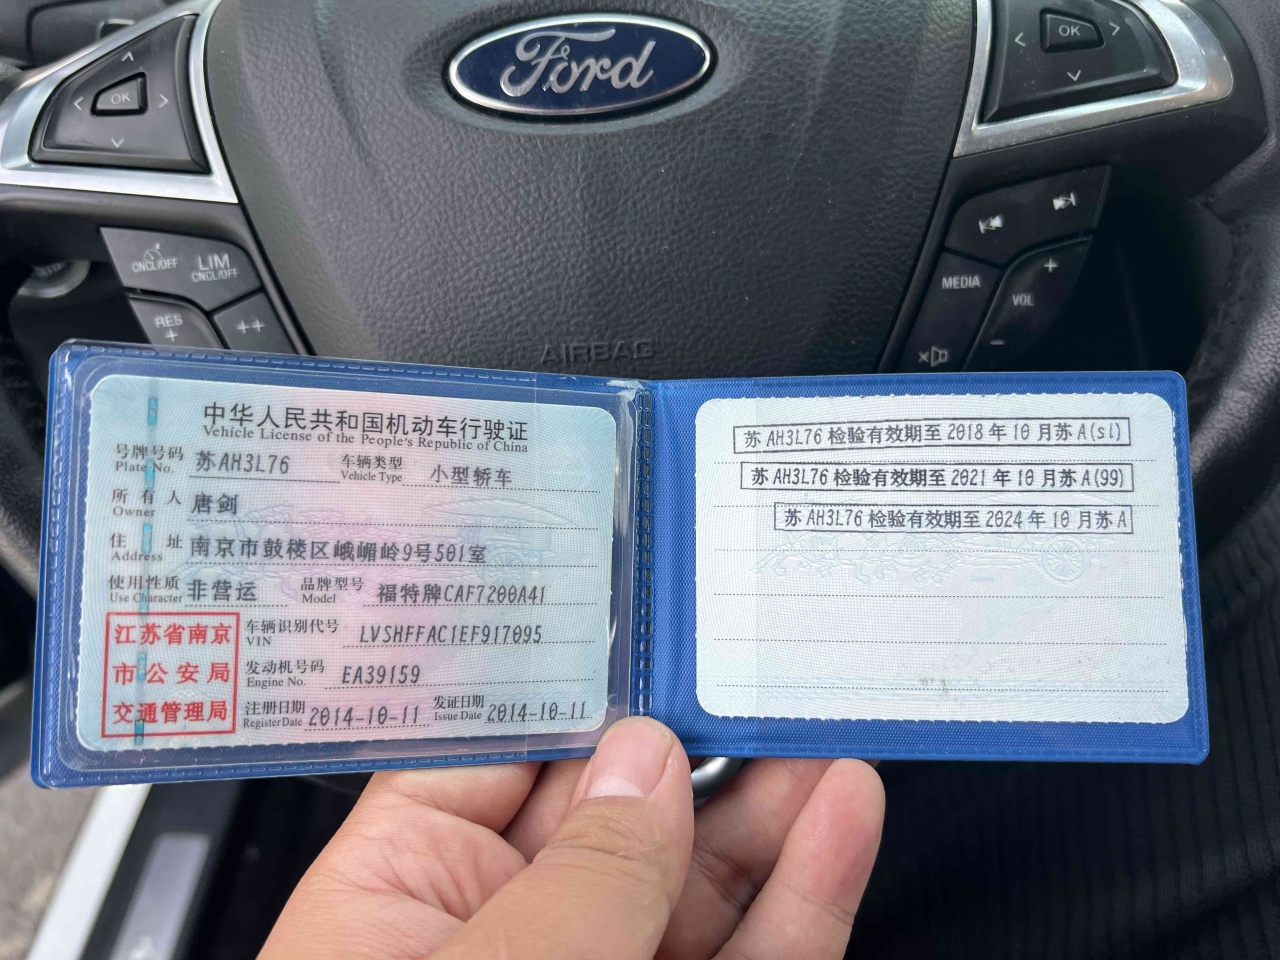 Ford
OK
OK
CNCL/OFF
LIM
CNCL/OFF
RES
+
++
MEDIA
+
VOL
−
AIRBAG
中华人民共和国机动车行驶证
Vehicle License of the People's Republic of China
号牌号码 苏AH3L76 车辆类型 小型轿车
Plate No. Vehicle Type
所有人 唐剑
Owner
住址 南京市鼓楼区峨嵋岭9号501室
Address
使用性质 非营运 品牌型号 福特牌CAF7200A41
Use Character Model
江苏省南京
市公安局
交通管理局
车辆识别代号 LVSHFFAC1EF917095
VIN
发动机号码 EA39159
Engine No.
注册日期 2014-10-11 发证日期 2014-10-11
Register Date Issue Date
苏AH3L76 检验有效期至 2018 年 10 月苏 A(sl)
苏AH3L76 检验有效期至 2021 年 10 月苏 A(99)
苏AH3L76 检验有效期至 2024 年 10 月苏 A